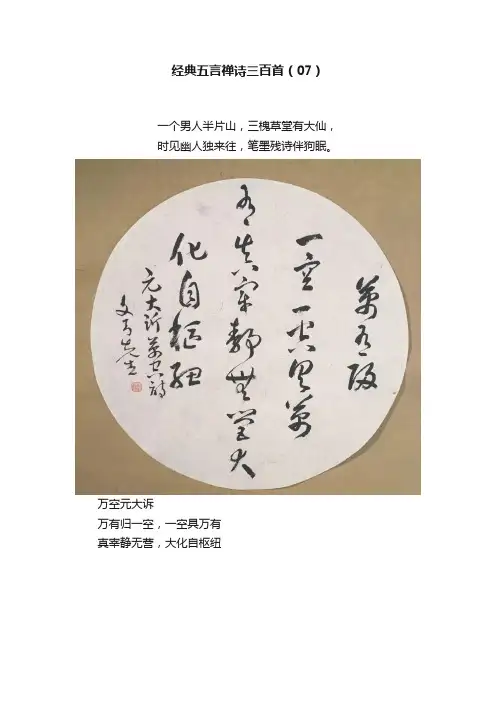 经典五言禅诗三百首(07)
一个男人半片山,三槐草堂有大仙,
时见幽人独来往,笔墨残诗伴狗眠。
萬有歸
一空一空具萬
有真宰靜無營大
化自樞紐
元大訢萬空詩
先生
万空元大诉
万有归一空,一空具万有
真宰静无营,大化自枢纽